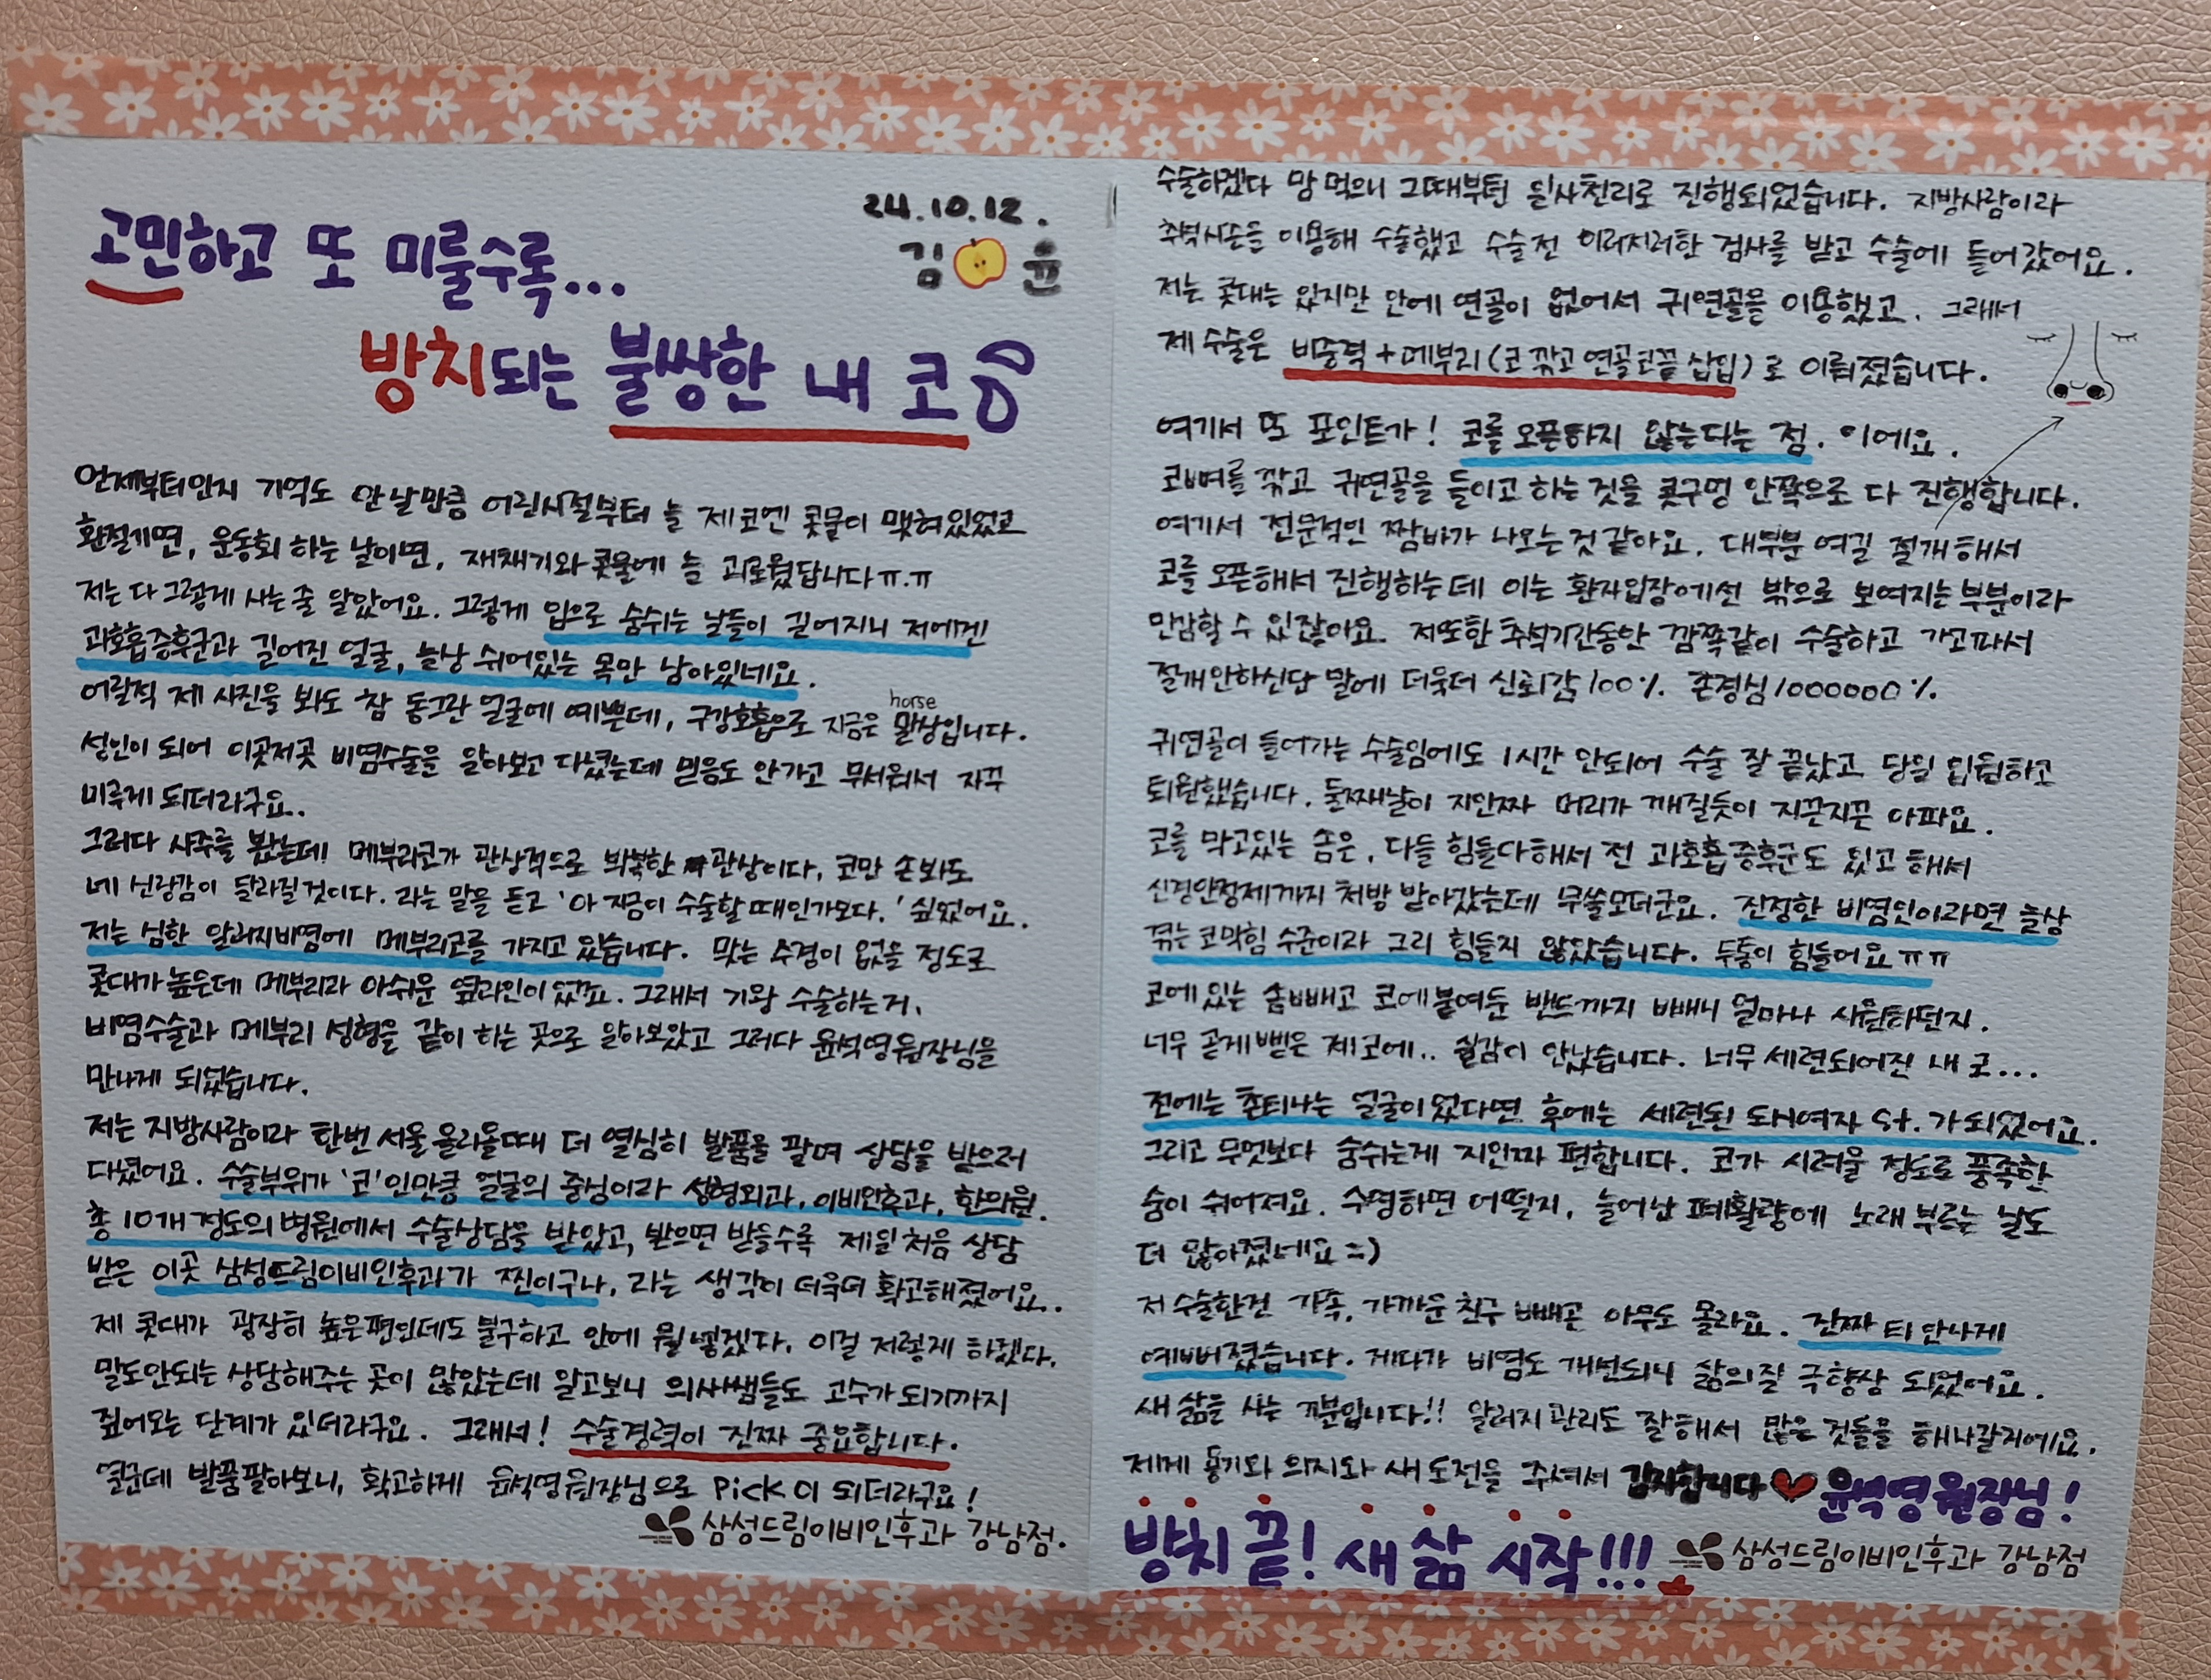 24.10.12.
김 윤
고민하고 또 미룰수록...
방치되는 불쌍한 내 코
언제부터인지 기억도 안 날만큼 어린시절부터 늘 제 코엔 콧물이 맺혀있었고
환절기면, 운동회 하는 날이면, 재채기와 콧물에 늘 괴로웠답니다ㅠ.ㅠ
저는 다 그렇게 사는 줄 알았어요. 그렇게 입으로 숨쉬는 날들이 길어지니 저에겐
과호흡증후군과 길어진 얼굴, 늘상 쉬어있는 목만 남아있네요.
어릴적 제 사진을 봐도 참 동그란 얼굴에 예쁜데, 구강호흡으로 지금은 말상입니다.
horse
성인이 되어 이곳저곳 비염수술을 알아보고 다녔는데 믿음도 안가고 무서워서 자꾸
미루게 되더라구요..
그러다 사주를 봤는데! 메부리코가 관상적으로 박복한 관상이다, 코만 손봐도
네 신랑감이 달라질것이다. 라는 말을 듣고 '아 지금이 수술할 때인가보다.' 싶었어요.
저는 심한 알러지비염에 메부리코를 가지고 있습니다. 맞는 수경이 없을 정도로
콧대가 높은데 메부리라 아쉬운 옆라인이었죠. 그래서 기왕 수술하는거,
비염수술과 메부리 성형을 같이 하는 곳으로 알아보았고 그러다 윤석영원장님을
만나게 되었습니다.
저는 지방사람이라 한번 서울 올라올때 더 열심히 발품을 팔며 상담을 받으러
다녔어요. 수술부위가 '코'인만큼 얼굴의 중심이라 성형외과, 이비인후과, 한의원.
총 10개 정도의 병원에서 수술상담을 받았고, 받으면 받을수록 제일 처음 상담
받은 이곳 삼성드림이비인후과가 찐이구나, 라는 생각이 더욱더 확고해졌어요..
제 콧대가 굉장히 높은편인데도 불구하고 안에 뭘 넣겠다, 이걸 저렇게 하겠다,
말도안되는 상담해주는 곳이 많았는데 알고보니 의사쌤들도 고수가 되기까지
짚어오는 단계가 있더라구요. 그래서! 수술경력이 진짜 중요합니다.
열군데 발품팔아보니, 확고하게 윤석영원장님으로 PiCK이 되더라구요!
삼성드림이비인후과 강남점.
수술하겠다 맘 먹으니 그때부턴 일사천리로 진행되었습니다. 지방사람이라
추석시즌을 이용해 수술했고 수술전 이러저러한 검사를 받고 수술에 들어갔어요.
저는 콧대는 있지만 안에 연골이 없어서 귀연골을 이용했고, 그래서
제 수술은 비중격+메부리(코 깎고 연골코끝 삽입)로 이뤄졌습니다.
여기서 또 포인트가! 코를 오픈하지 않는다는 점. 이에요.
코뼈를 깎고 귀연골을 들이고 하는 것을 콧구멍 안쪽으로 다 진행합니다.
여기서 전문적인 짬바가 나오는것 같아요. 대부분 여길 절개해서
코를 오픈해서 진행하는데 이는 환자입장에선 밖으로 보여지는 부분이라
민감할 수 있잖아요. 저또한 추석기간동안 깜쪽같이 수술하고 가고파서
절개안하신단 말에 더욱더 신뢰감 100%. 존경심 1000000%.
귀연골이 들어가는 수술임에도 1시간 안되어 수술 잘 끝났고 당일 입원하고
퇴원했습니다. 둘째날이 지인짜 머리가 깨질듯이 지끈지끈 아파요.
코를 막고있는 솜은, 다들 힘들다해서 전 과호흡증후군도 있고 해서
신경안정제까지 처방 받아갔는데 무쓸모더군요. 진정한 비염인이라면 늘상
겪는 코막힘 수준이라 그리 힘들지 않았습니다. 두통이 힘들어요ㅠㅠ
코에 있는 솜빼고 코에 붙여둔 밴드까지 빼니 얼마나 시원하던지.
너무 곧게 뻗은 제코에.. 실감이 안났습니다. 너무 세련되어진 내 코...
전에는 촌티나는 얼굴이었다면 후에는 세련된 도시여자 St.가 되었어요.
그리고 무엇보다 숨쉬는게 지인짜 편합니다. 코가 시려울 정도로 풍족한
숨이 쉬어져요. 수영하면 어떨지, 늘어난 폐활량에 노래 부르는 날도
더 많아졌네요 =)
저 수술한건 가족, 가까운 친구 빼곤 아무도 몰라요. 진짜 티 안나게
예뻐졌습니다. 게다가 비염도 개선되니 삶의질 극향상 되었어요.
새 삶을 사는 기분입니다!! 알러지 관리도 잘해서 많은 것들을 해나갈거에요.
제게 용기와 의지와 새 도전을 주셔서 감사합니다 윤석영원장님!
방치 끝! 새 삶 시작!!!
삼성드림이비인후과 강남점